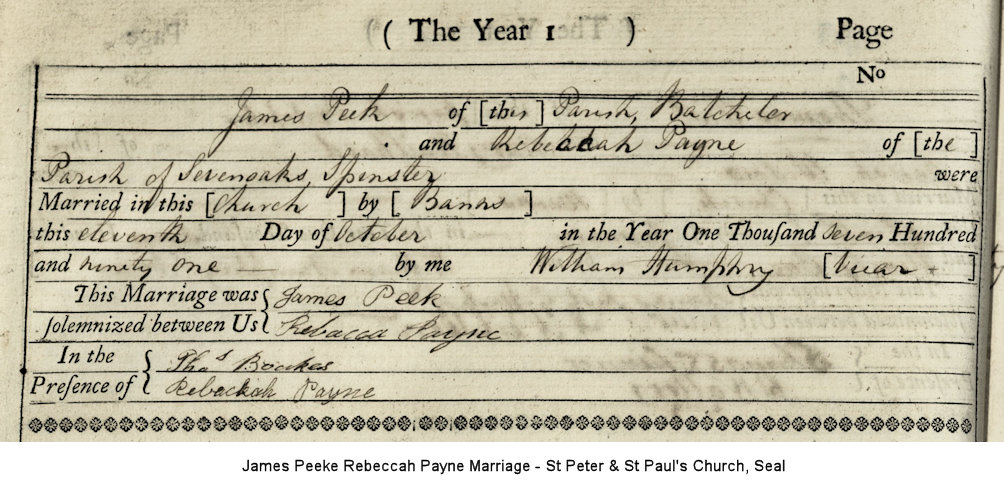 ( The Year 1 ) Page
No
James Peek of [this] Parish, Batcheler
and Rebeccah Payne of [the ]
Parish of Sevenoaks, Spinster were
Married in this [Church ] by [ Banns ]
this eleventh Day of October in the Year One Thouſand seven Hundred
and ninety one — by me William Humphry [Vicar ]
This Marriage was { James Peek
ſolemnized between Us { Rebacca Payne
In the { Thos
Preſence of { Rebackah Payne
James Peeke Rebeccah Payne Marriage - St Peter & St Paul's Church, Seal